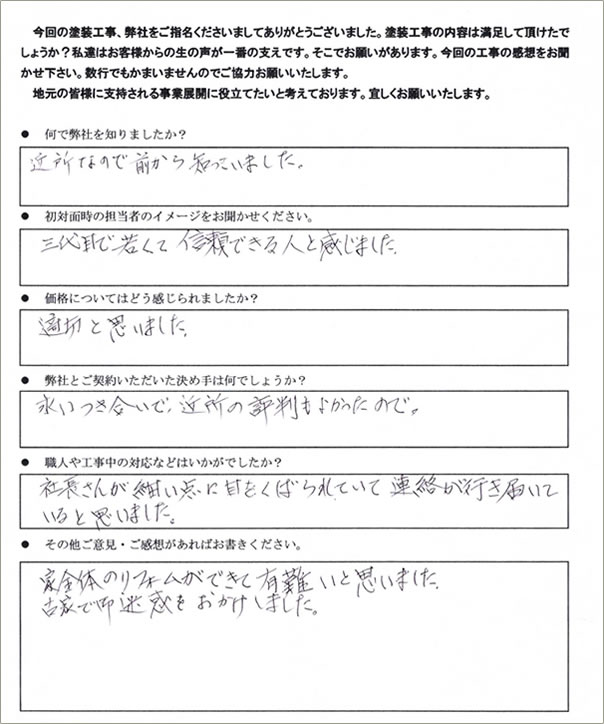 今回の塗装工事、弊社をご指名くださいましてありがとうございました。塗装工事の内容は満足して頂けたで
しょうか？私達はお客様からの生の声が一番の支えです。そこでお願いがあります。今回の工事の感想をお聞
かせ下さい。数行でもかまいませんのでご協力お願いいたします。
地元の皆様に支持される事業展開に役立てたいと考えております。宜しくお願いいたします。
● 何で弊社を知りましたか？
近所なので前から知っていました。
● 初対面時の担当者のイメージをお聞かせください。
三代目で若くて信頼できる人と感じました。
● 価格についてはどう感じられましたか？
適切と思いました。
● 弊社とご契約いただいた決め手は何でしょうか？
永いつき合いで、近所の評判もよかったので。
● 職人や工事中の対応などはいかがでしたか？
社長さんが細い点に目をくばられていて連絡が行き届いて
いると思いました。
● その他ご意見・ご感想があればお書きください。
家全体のリフォームができて有難いと思いました。
古家で御迷惑をおかけしました。